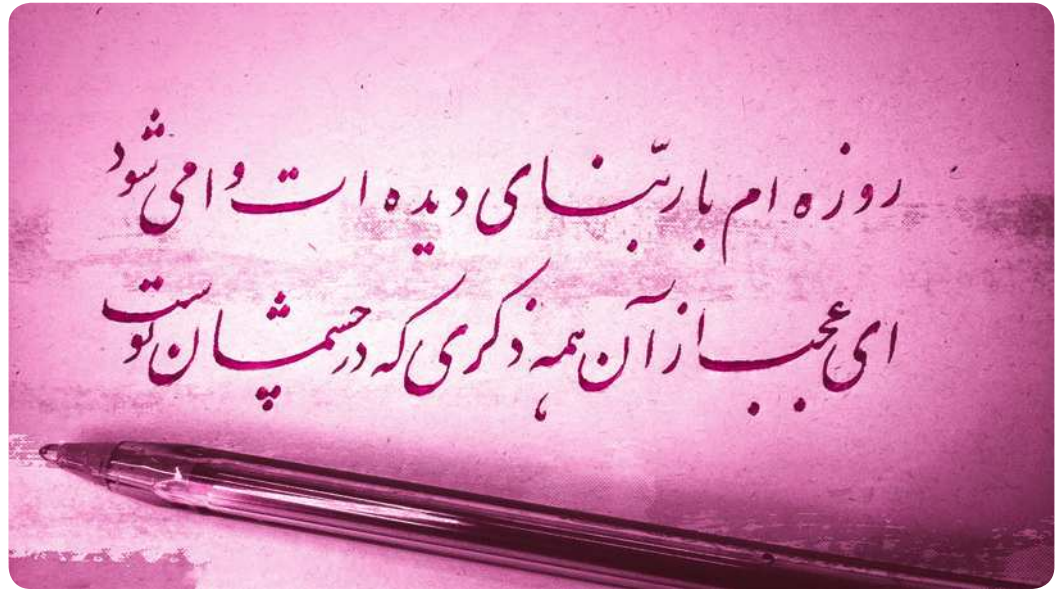 روزه ام با ربّنای دیده ات وا می شود
ای عجب از آن همه ذکری که در چشمان توست